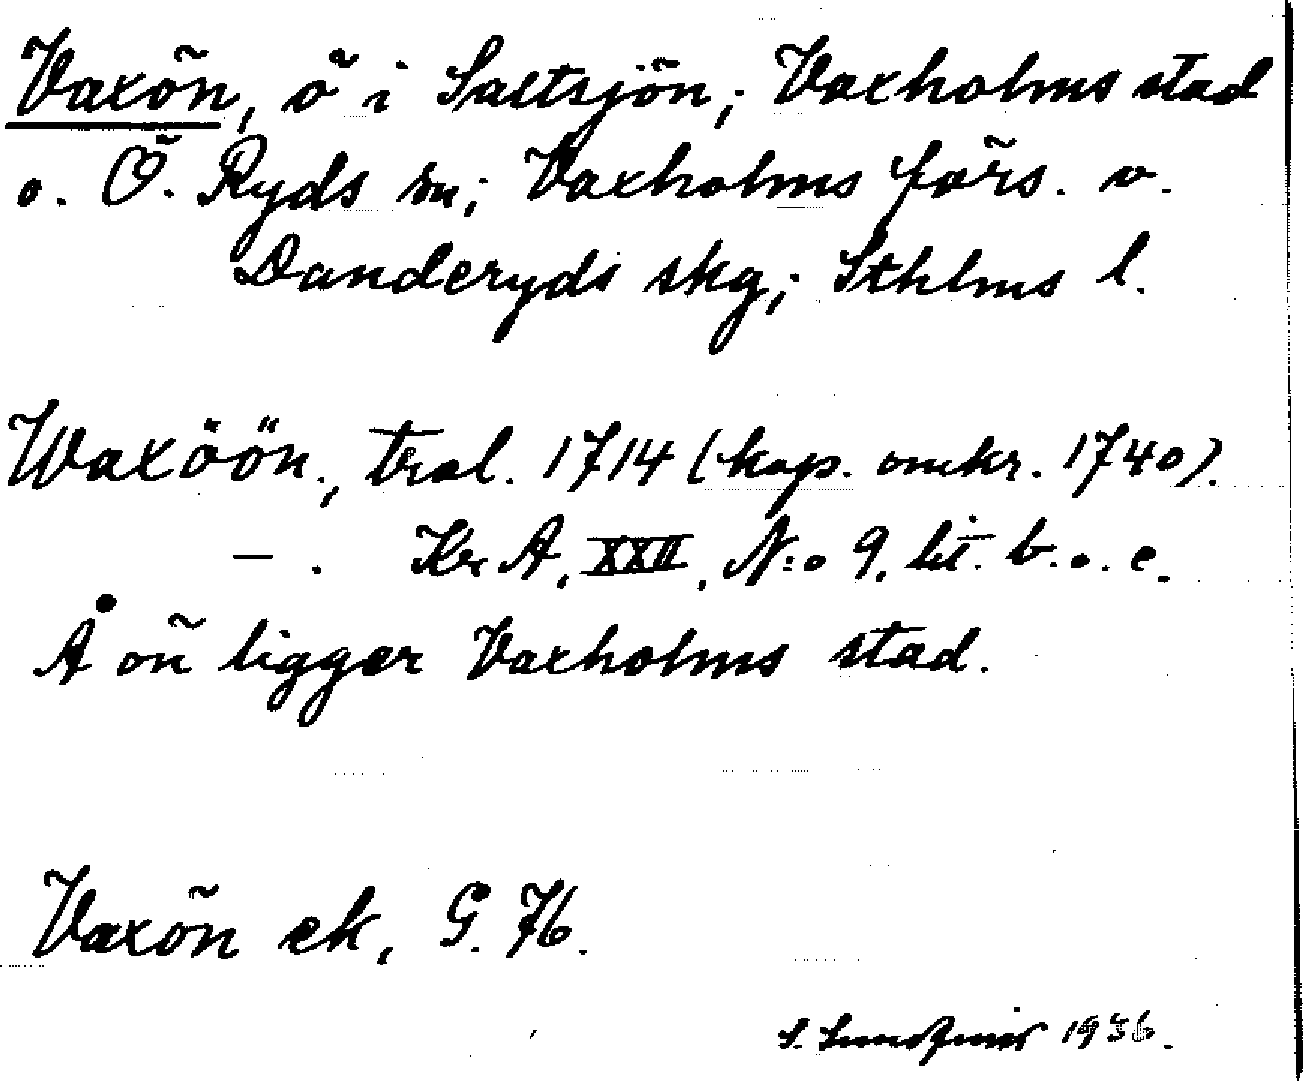 Vaxön, ö i Saltsjön; Vaxholms stad
o. Ö. Ryds sn; Vaxholms förs. o.
Danderyds skg; Sthlms l.
Waxöön., tral. 1714 (kop. omkr. 1740).
— . Kr A, XXII, N:o 9, lit. b. o. c.
Å ön ligger Vaxholms stad.
Vaxön ek, G. 76.
S. 1936.